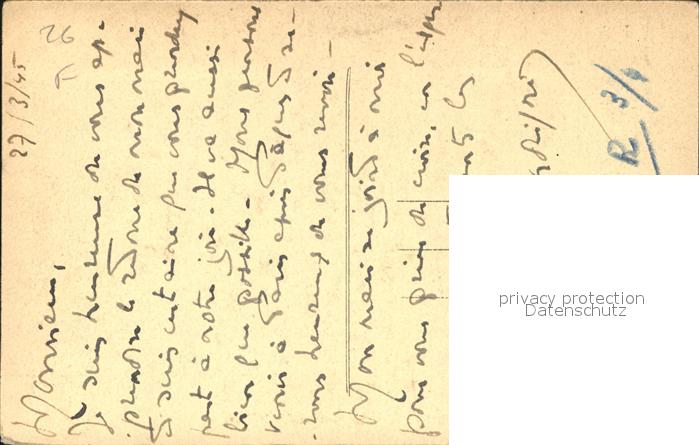 27/3/45
26
Monsieur,
Je suis heureuse de vous ap-
prendre le retour de mon mari
Je suis certaine que vous prendrez
part à notre joie. Il va aussi
bien que possible. Nous pensons
venir à Paris après Pâques & se-
rons heureux de vous revoir.
Mon mari se joint à moi
pour vous prier de croire, en l'
R 3/4
privacy protection
Datenschutz